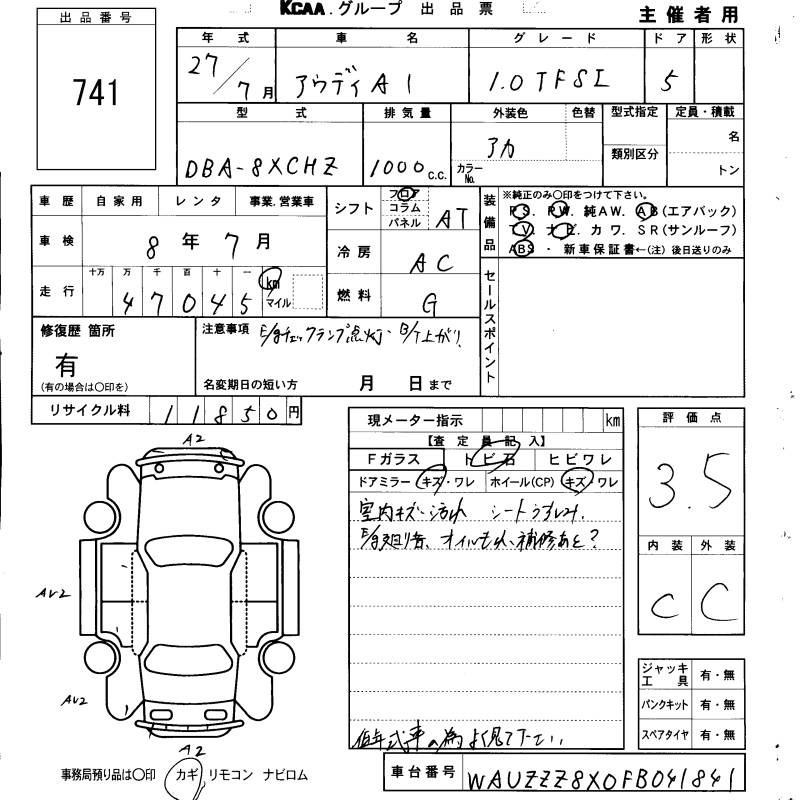 KCAA.グループ 出品票
主催者用
出品番号
741
年式 車名 グレード ドア 形状
27/7月 アウディA1 1.0TFSI 5
型式 排気量 外装色 色替 型式指定 定員・積載
類別区分
DBA-8XCHZ 1000c.c. アカ カラーNo. 名
トン
車歴 自家用 レンタ 事業.営業車
車検 8年7月
走行 十万 万 千 百 十 一
47045 km マイル
シフト フロア コラム パネル AT
冷房 AC
燃料 G
装備品
※純正のみ〇印をつけて下さい。
PS. PW. 純AW. AB(エアバック)
TV. ナビ. カワ. SR(サンルーフ)
ABS・新車保証書←(注)後日送りのみ
セールスポイント
修復歴 箇所
有
(有の場合は〇印を)
注意事項 E/gチェックランプ点灯、B/T上がり、
名変期日の短い方 月 日まで
リサイクル料 11850円
現メーター指示 km
【査定員記入】
Fガラス トビ石 ヒビワレ
ドアミラー キズ・ワレ ホイール(CP) キズ・ワレ
室内キズ・汚れ シートうすじみ、
オイルもれ、補修あと?
低年式車の為よく見て下さい。
評価点
3.5
内装 外装
C C
A2
AU2
AU2
A2
ジャッキ工具 有・無
パンクキット 有・無
スペアタイヤ 有・無
事務局預り品は〇印 カギ リモコン ナビロム
車台番号 WAUZZZ8X0FB041841